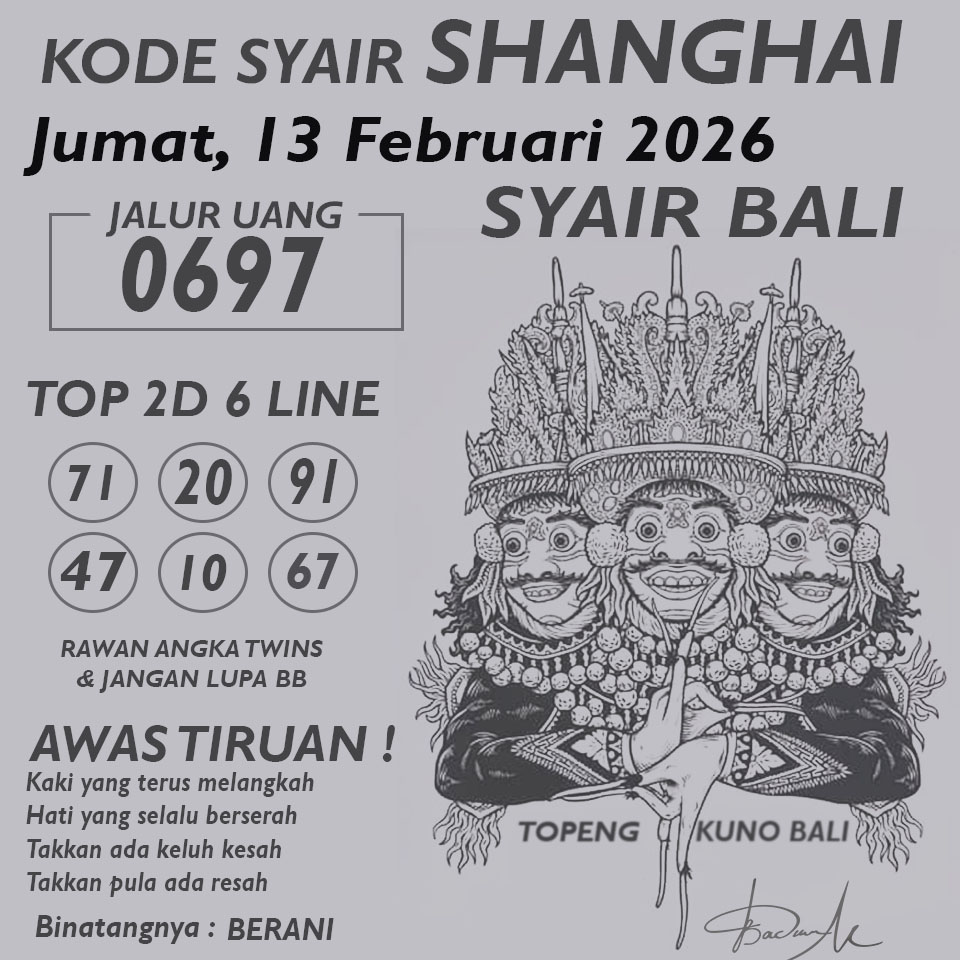 KODE SYAIR SHANGHAI
Jumat, 13 Februari 2026
SYAIR BALI
JALUR UANG
0697
TOP 2D 6 LINE
71 20 91
47 10 67
RAWAN ANGKA TWINS
& JANGAN LUPA BB
AWAS TIRUAN !
Kaki yang terus melangkah
Hati yang selalu berserah
Takkan ada keluh kesah
Takkan pula ada resah
Binatangnya : BERANI
TOPENG KUNO BALI